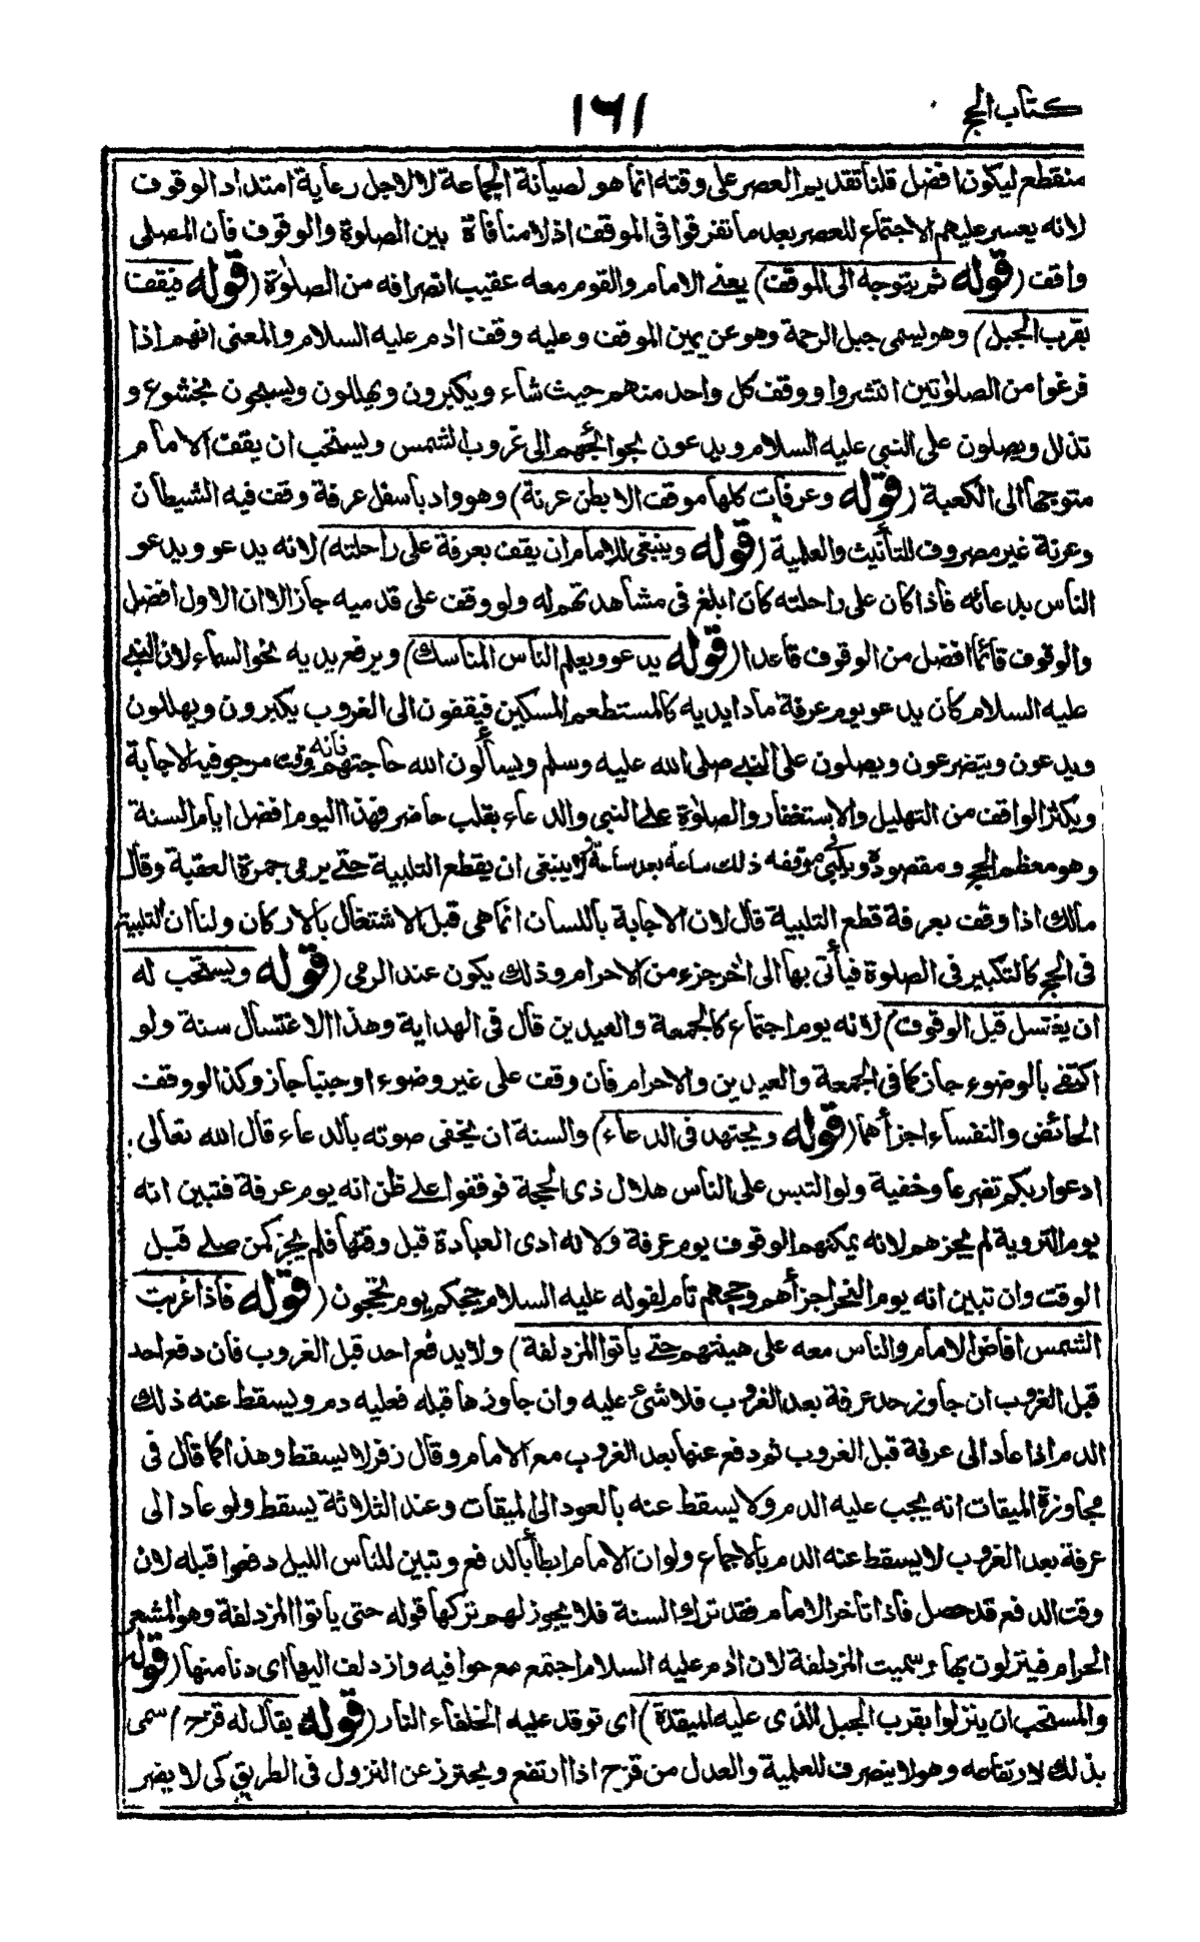 كتاب الحج
١٦١
منقطع ليكون افضل قلنا تقديم العصر على وقته انما هو لصيانة الجماعة لا لاجل رعاية امتداد الوقوف
لانه يعسر عليهم الاجتماع للعصر بعد ما تفرقوا فى الموقف اذ لا منافاة بين الصلوة والوقوف فان المصلى
واقف (قوله ثم يتوجه الى الموقف) يعنى الامام والقوم معه عقيب انصرافه من الصلوٰة (قوله فيقف
بقرب الجبل) وهو يسمى جبل الرحمة وهو عن يمين الموقف وعليه وقف اٰدم عليه السلام والمعنى انهم اذا
فرغوا من الصلوٰتين انتشروا ووقف كل واحد منهم حيث شاء ويكبرون ويهللون ويسبحون بخشوع و
تذلل ويصلون على النبى عليه السلام ويدعون بحوائجهم الى غروب الشمس ويستحب ان يقف الامام
متوجها الى الكعبة (قوله وعرفات كلها موقف الا بطن عرنة) وهو واد باسفل عرفة وقف فيه الشيطان
وعرنة غير مصروف للتأنيث والعلمية (قوله وينبغى للامام ان يقف بعرفة على راحلته) لانه يدعو ويدعو
الناس بدعائه فاذا كان على راحلته كان ابلغ فى مشاهدتهم له ولو وقف على قدميه جاز الا ان الاول افضل
والوقوف قائما افضل من الوقوف قاعدا (قوله يدعو ويعلم الناس المناسك) ويرفع يديه نحو السماء لان النبى
عليه السلام كان يدعو يوم عرفة مادا يديه كالمستطعم المسكين فيقفون الى الغروب يكبرون ويهللون
ويدعون ويتضرعون ويصلون على النبى صلى الله عليه وسلم ويسألون الله حاجتهم فانه وقت مرجو فيه الاجابة
ويكثر الواقف من التهليل والاستغفار والصلوٰة على النبى والدعاء بقلب حاضر فهذا اليوم افضل ايام السنة
وهو معظم الحج ومقصوده ويلبى فى موقفه ذلك ساعة بعد ساعة لا ينبغى ان يقطع التلبية حتى يرمى جمرة العقبة وقال
مالك اذا وقف بعرفة قطع التلبية قال لان الاجابة باللسان انما هى قبل الاشتغال بالاركان ولنا ان التلبية
فى الحج كالتكبير فى الصلوة فيأتى بها الى اٰخر جزء من الاحرام وذلك يكون عند الرمى (قوله ويستحب له
ان يغتسل قبل الوقوف) لانه يوم اجتماع كالجمعة والعيدين قال فى الهداية وهذا الاغتسال سنة ولو
اكتفى بالوضوء جاز كما فى الجمعة والعيدين والاحرام فان وقف على غير وضوء او جنبا جاز وكذا لو وقف
الحائض والنفساء اجزأهما (قوله ويجتهد فى الدعاء) والسنة ان يخفى صوته بالدعاء قال الله تعالى
ادعوا ربكم تضرعا وخفية ولو التبس على الناس هلال ذى الحجة فوقفوا على ظن انه يوم عرفة فتبين انه
يوم التروية لم يجزهم لانه يمكنهم الوقوف يوم عرفة ولانه ادى العبادة قبل وقتها فلم يجز كمن صلى قبل
الوقت وان تبين انه يوم النحر اجزأهم وحجهم تام لقوله عليه السلام حجكم يوم تحجون (قوله فاذا غربت
الشمس افاض الامام والناس معه على هينتهم حتى يأتوا المزدلفة) ولا يدفع احد قبل الغروب فان دفع احد
قبل الغروب ان جاوز حد عرفة بعد الغروب فلا شئ عليه وان جاوزها قبله فعليه دم ويسقط عنه ذلك
الدم اذا عاد الى عرفة قبل الغروب ثم دفع عنها بعد الغروب مع الامام وقال زفر لا يسقط وهذا كما قال فى
مجاوزة الميقات انه يجب عليه الدم ولا يسقط عنه بالعود الى الميقات وعند الثلاثة يسقط ولو عاد الى
عرفة بعد الغروب لا يسقط عنه الدم بالاجماع ولو ان الامام ابطأ بالدفع وتبين للناس الليل دفعوا قبله لان
وقت الدفع قد حصل فاذا تأخر الامام فقد ترك السنة فلا يجوز لهم تركها قوله حتى يأتوا المزدلفة وهو المشعر
الحرام فينزلون بها وسميت المزدلفة لان اٰدم عليه السلام اجتمع مع حوا فيه وازدلف اليها اى دنا منها (قوله
والمستحب ان ينزلوا بقرب الجبل الذى عليه الميقدة) اى توقد عليه الخلفاء النار (قوله يقال له قزح) سمى
بذلك لارتفاعه وهو لا ينصرف للعلمية والعدل من قزح اذا ارتفع ويحترز عن النزول فى الطريق كى لا يضر